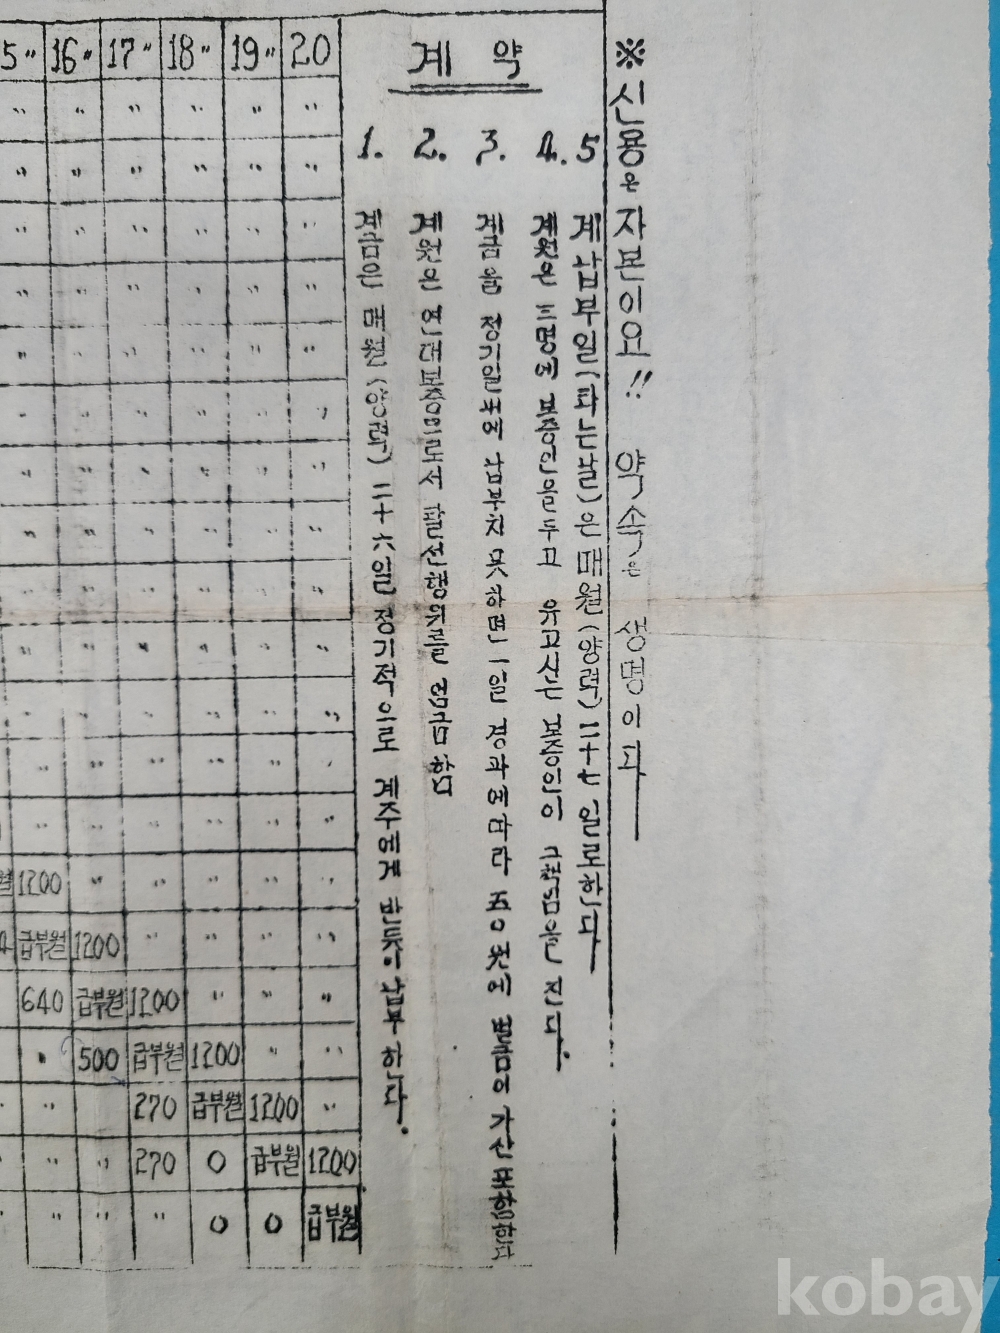 5〃 16〃 17〃 18〃 19〃 20
〃 〃 〃 〃 〃 〃
〃 〃 〃 〃 〃 〃
〃 〃 〃 〃 〃 〃
〃 〃 〃 〃 〃 〃
〃 〃 〃 〃 〃 〃
〃 〃 〃 〃 〃 〃
〃 〃 〃 〃 〃 〃
〃 〃 〃 〃 〃 〃
〃 〃 〃 〃 〃 〃
〃 〃 〃 〃 〃 〃
〃 〃 〃 〃 〃 〃
〃 〃 〃 〃 〃 〃
〃 〃 〃 〃 〃
월 1200 〃 〃 〃 〃 〃
급부월 1200 〃 〃 〃 〃
640 급부월 1200 〃 〃 〃
〃 500 급부월 1200 〃 〃
〃 〃 270 급부월 1200 〃
〃 〃 〃 270 0 급부월 1200
〃 〃 〃 〃 0 0 급부월
계 약
1. 계금은 매월(양력) 二十六일 정기적으로 계주에게 반듯이 납부하다.
2. 계원은 연대보증므로서 탈선행위를 엄금함
3. 계금을 정기일내에 납부치 못하면 一일 경과에따라 五0원에 벌금이 가산 포함한다
4. 계원은 三명에 보증인을 두고 유고시는 보증인이 그책임을 진다.
5 계납부일(타는날)은 매월(양력)二十七일로한다
※신용은 자본이요!! 약속은 생명이다
kobay